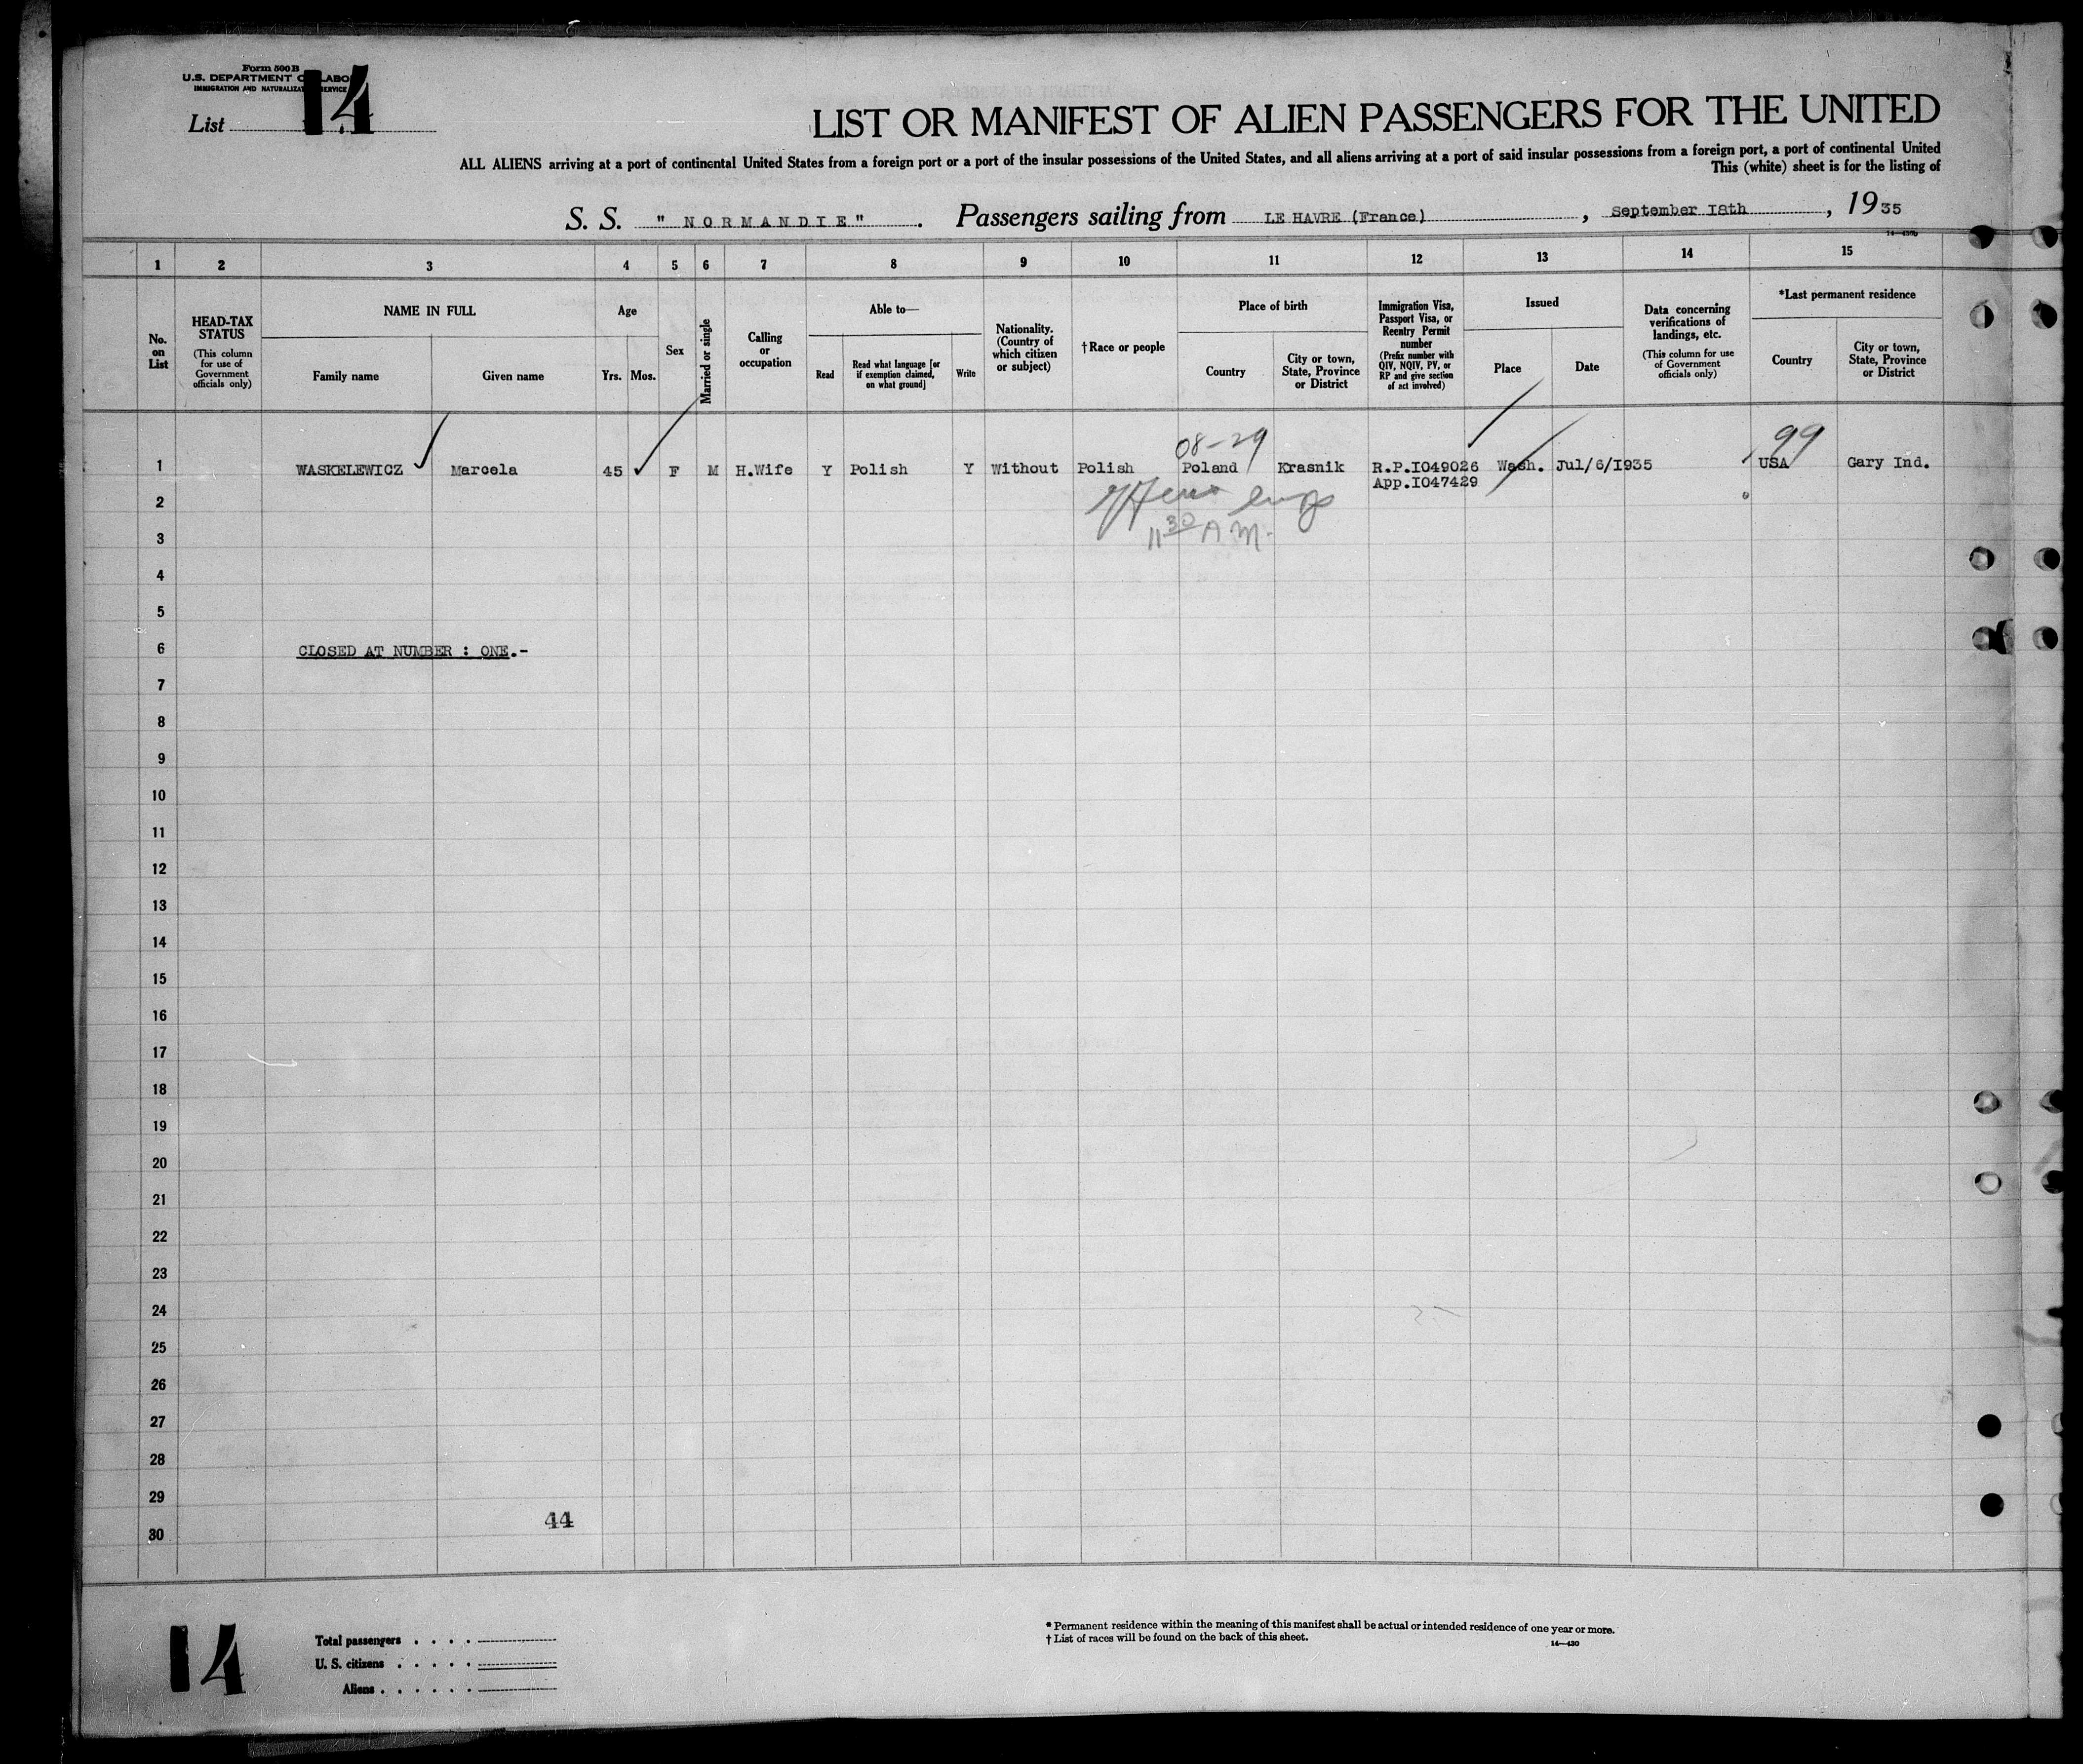 Form 500 B
U.S. DEPARTMENT OF LABOR
IMMIGRATION AND NATURALIZATION SERVICE
List 14
LIST OR MANIFEST OF ALIEN PASSENGERS FOR THE UNITED
ALL ALIENS arriving at a port of continental United States from a foreign port or a port of the insular possessions of the United States, and all aliens arriving at a port of said insular possessions from a foreign port, a port of continental United
This (white) sheet is for the listing of
S. S. " NORMANDIE " . Passengers sailing from LE HAVRE (France) , September I8th , 1935
1 2 3 4 5 6 7 8 9 10 11 12 13 14 15
No. on List
HEAD-TAX STATUS
(This column for use of Government officials only)
NAME IN FULL
Family name
Given name
Age
Yrs. Mos.
Sex
Married or single
Calling or occupation
Able to—
Read
Read what language [or if exemption claimed, on what ground]
Write
Nationality. (Country of which citizen or subject)
†Race or people
Place of birth
Country
City or town, State, Province or District
Immigration Visa, Passport Visa, or Reentry Permit number
(Prefix number with QIV, NQIV, PV, or RP and give section of act involved)
Issued
Place
Date
Data concerning verifications of landings, etc.
(This column for use of Government officials only)
*Last permanent residence
Country
City or town, State, Province or District
08-29
99
1 WASKELEWICZ Marcela 45 F M H.Wife Y Polish Y Without Polish Poland Krasnik R.P.I049026 Wash. Jul/6/I935 USA Gary Ind.
App.I047429
2
11 30 A M.
3
4
5
6 CLOSED AT NUMBER : ONE.-
7
8
9
10
11
12
13
14
15
16
17
18
19
20
21
22
23
24
25
26
27
28
29
44
30
14
Total passengers . . . .
U. S. citizens . . . . .
Aliens . . . . . .
* Permanent residence within the meaning of this manifest shall be actual or intended residence of one year or more.
† List of races will be found on the back of this sheet.
14—430